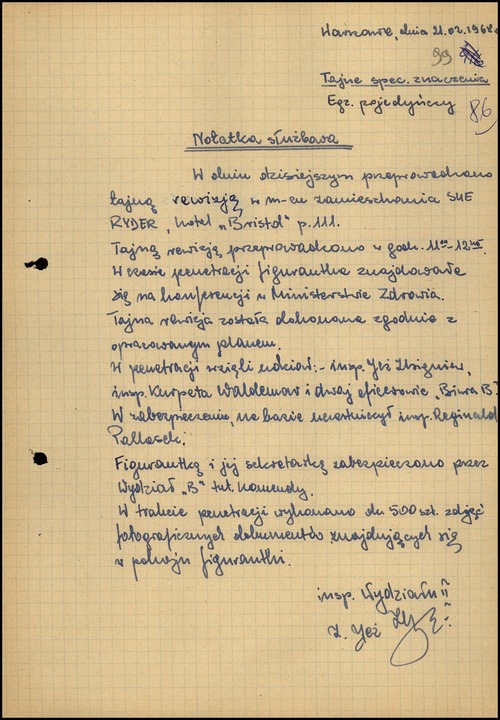 Warszawa, dnia 21.02.1964r
99
Tajne spec. znaczenia
Egz. pojedyńczy
86
Notatka służbowa
W dniu dzisiejszym przeprowadzono
tajną rewizją w m-cu zamieszkania SUE
RYDER, hotel „Bristol" p. 111.
Tajną rewizją przeprowadzono w godz. 11⁰⁰-12⁴⁵.
W czasie penetracji figurantka znajdowała
się na konferencji w Ministerstwie Zdrowia.
Tajna rewizja została dokonana zgodnie z
opracowanym planem.
W penetracji wzięli udział:- insp. Jeż Zbigniew,
insp. Kurpeta Waldemar i dwaj oficerowie „Biura B".
W zabezpieczeniu, na bazie uczestniczył insp. Reginald
Pallasek.
Figurantką i jej sekretarką zabezpieczono przez
Wydział „B" tut. Komendy.
W trakcie penetracji wykonano ok. 500 szt. zdjęć
fotograficznych dokumentów znajdujących się
w pokoju figurantki.
insp. Wydziału II
Z. Jeż